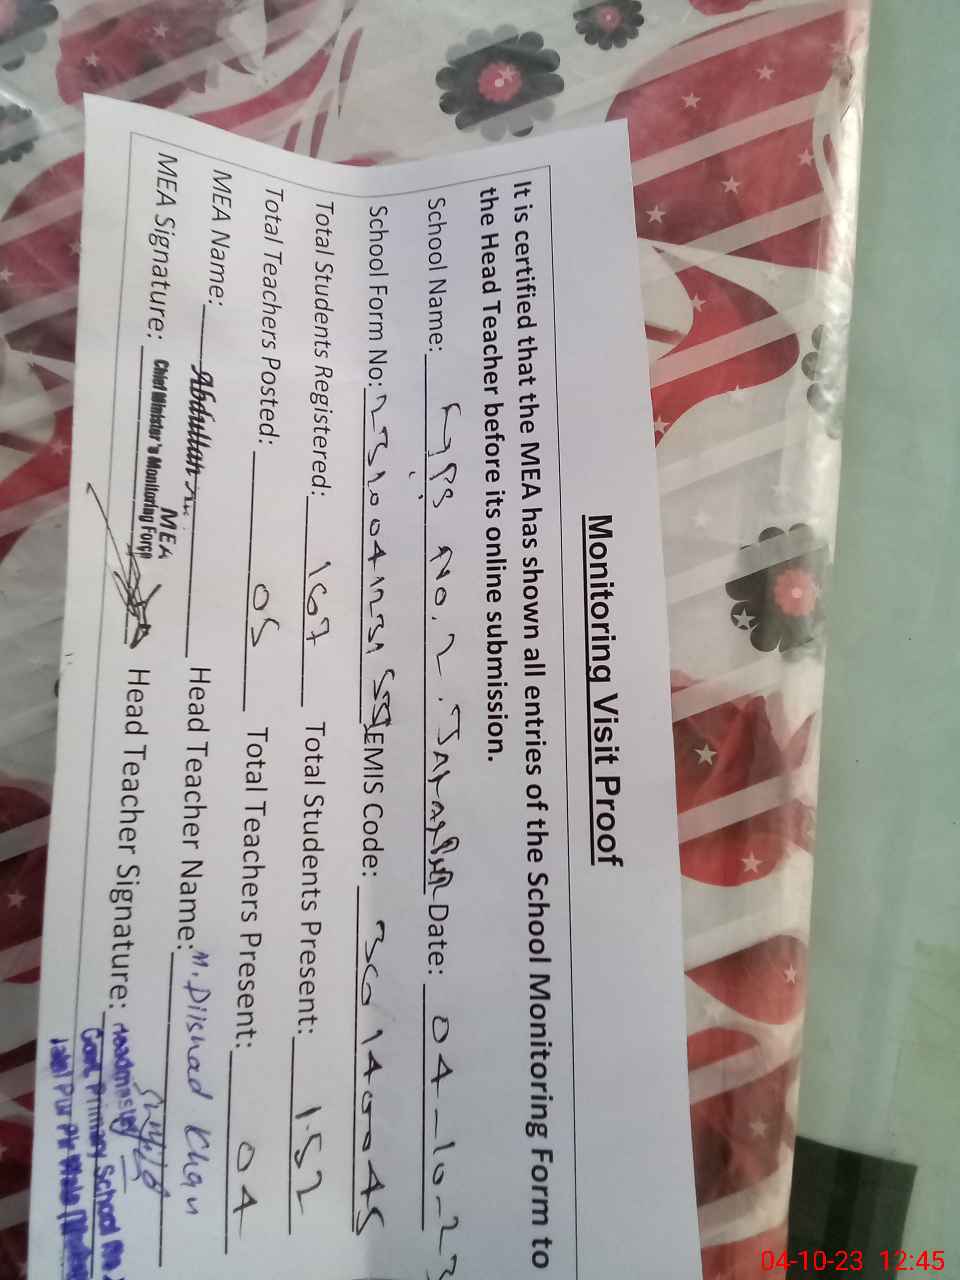 Monitoring Visit Proof
It is certified that the MEA has shown all entries of the School Monitoring Form to
the Head Teacher before its online submission.
School Name: No. 2. Date: 04-10-23
School Form No: EMIS Code:
Total Students Registered: 167 Total Students Present: 152
Total Teachers Posted: 05 Total Teachers Present: 04
MEA Name: Abdullah Head Teacher Name: M. Dilshad Khan
MEA Signature: MEA Head Teacher Signature: Headmaster
Chief Minister's Monitoring Force
Govt. Primary School No
Jalal Pur Pir Wala
04-10-23 12:45